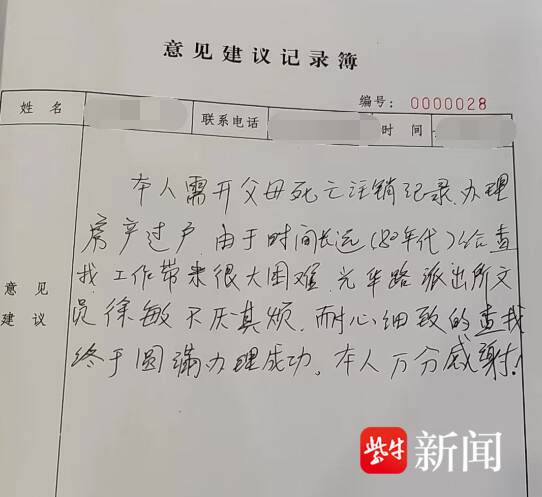 意见建议记录簿
编号: 0000028
姓名 联系电话 时间
本人需开父母死亡注销记录.办理
房产过户 由于时间长远(80年代)给查
找工作带来很大困难 光华路派出所文
员徐敏不厌其烦.耐心细致的查找
终于圆满办理成功.本人万分感谢!
意见
建议
紫牛新闻